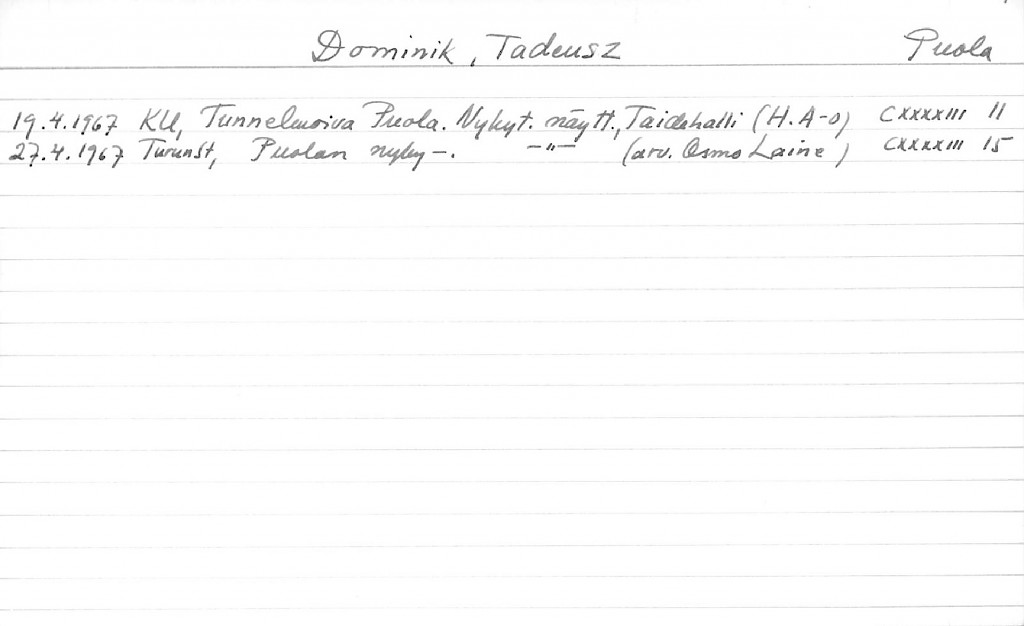 Dominik, Tadeusz Puola
19.4.1967 KU, Tunnelmoiva Puola. Nykyt. näytt., Taidehalli (H.A-o) CXXXXIII 11
27.4.1967 TurunSt, Puolan nyky-. -"- (arv. Osmo Laine) CXXXXIII 15